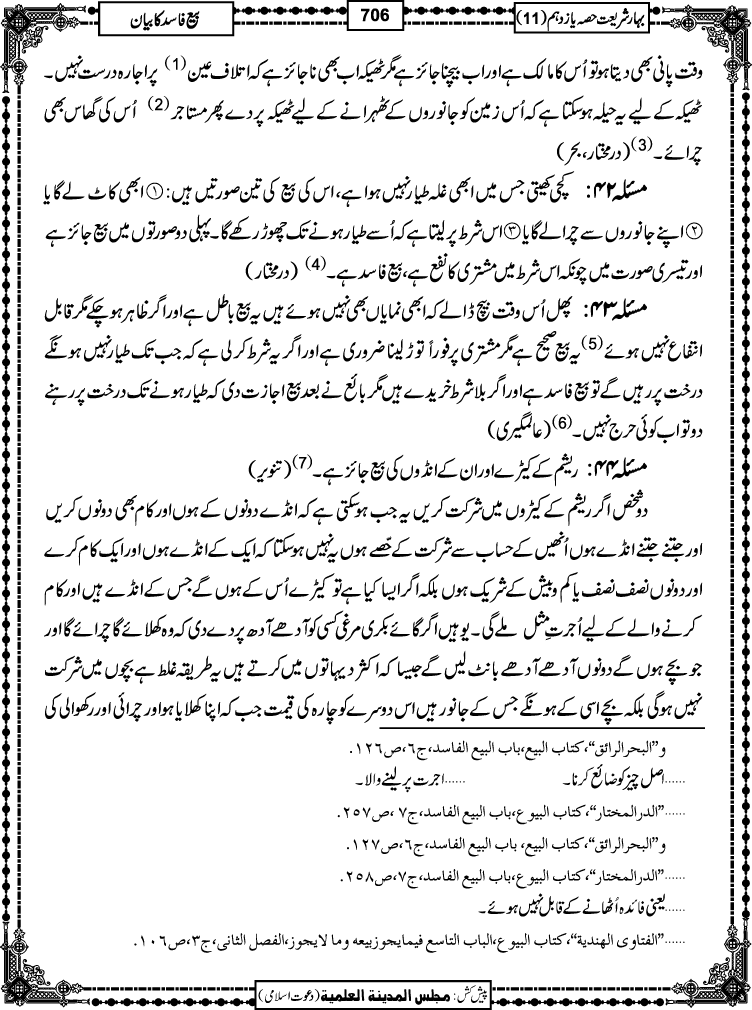 بہارشریعت حصہ یازدہم (11)
706
بیع فاسد کا بیان
وقت پانی بھی دیتا ہو تو اُس کا مالک ہے اور اب بیچنا جائز ہے مگر ٹھیکہ اب بھی ناجائز ہے کہ اتلاف عین (1) پر اجارہ درست نہیں۔
ٹھیکہ کے لیے یہ حیلہ ہوسکتا ہے کہ اُس زمین کو جانوروں کے ٹھہرانے کے لیے ٹھیکہ پر دے پھر مستاجر (2) اُس کی گھاس بھی
چرائے۔(3) (درمختار، بحر)
مسئلہ ۴۲: کچی کھیتی جس میں ابھی غلہ طیار نہیں ہوا ہے، اس کی بیع کی تین صورتیں ہیں: ① ابھی کاٹ لے گا یا
② اپنے جانوروں سے چرا لے گا یا ③ اس شرط پر لیتا ہے کہ اُسے طیار ہونے تک چھوڑ رکھے گا۔ پہلی دو صورتوں میں بیع جائز ہے
اور تیسری صورت میں چونکہ اس شرط میں مشتری کا نفع ہے، بیع فاسد ہے۔(4) (درمختار)
مسئلہ ۴۳: پھل اُس وقت بیچ ڈالے کہ ابھی نمایاں بھی نہیں ہوئے ہیں یہ بیع باطل ہے اور اگر ظاہر ہوچکے مگر قابل
انتفاع نہیں ہوئے (5) یہ بیع صحیح ہے مگر مشتری پر فوراً توڑ لینا ضروری ہے اور اگر یہ شرط کرلی ہے کہ جب تک طیار نہیں ہونگے
درخت پر رہیں گے تو بیع فاسد ہے اور اگر بلا شرط خریدے ہیں مگر بائع نے بعد بیع اجازت دی کہ طیار ہونے تک درخت پر رہنے
دو تو اب کوئی حرج نہیں۔(6) (عالمگیری)
مسئلہ ۴۴: ریشم کے کیڑے اور ان کے انڈوں کی بیع جائز ہے۔(7) (تنویر)
دو شخص اگر ریشم کے کیڑوں میں شرکت کریں یہ جب ہوسکتی ہے کہ انڈے دونوں کے ہوں اور کام بھی دونوں کریں
اور جتنے جتنے انڈے ہوں اُنھیں کے حساب سے شرکت کے حصّے ہوں یہ نہیں ہوسکتا کہ ایک کے انڈے ہوں اور ایک کام کرے
اور دونوں نصف نصف یا کم و بیش کے شریک ہوں بلکہ اگر ایسا کیا ہے تو کیڑے اُس کے ہوں گے جس کے انڈے ہیں اور کام
کرنے والے کے لیے اُجرتِ مثل ملے گی۔ یوہیں اگر گائے بکری مرغی کسی کو آدھے آدھ پر دے دی کہ وہ کھلائے گا چرائے گا اور
جو بچے ہوں گے دونوں آدھے آدھے بانٹ لیں گے جیسا کہ اکثر دیہاتوں میں کرتے ہیں یہ طریقہ غلط ہے بچوں میں شرکت
نہیں ہوگی بلکہ بچے اسی کے ہونگے جس کے جانور ہیں اس دوسرے کو چارہ کی قیمت جب کہ اپنا کھلایا ہو اور چرائی اور رکھوالی کی
و"البحرالرائق"،کتاب البیع،باب البیع الفاسد،ج٦،ص١٢٦.
......اصل چیز کو ضائع کرنا۔ ......اجرت پر لینے والا۔
......"الدرالمختار"،کتاب البیوع،باب البیع الفاسد،ج٧،ص٢٥٧.
و"البحرالرائق"،کتاب البیع، باب البیع الفاسد،ج٦،ص١٢٧.
......"الدرالمختار"،کتاب البیوع،باب البیع الفاسد،ج٧،ص٢٥٨.
......یعنی فائدہ اُٹھانے کے قابل نہیں ہوئے۔
......"الفتاوی الھندیة"،کتاب البیوع،الباب التاسع فیمایجوزبیعه وما لایجوز،الفصل الثانی،ج٣،ص١٠٦.
پیش کش: مجلس المدینة العلمیة (دعوت اسلامی)